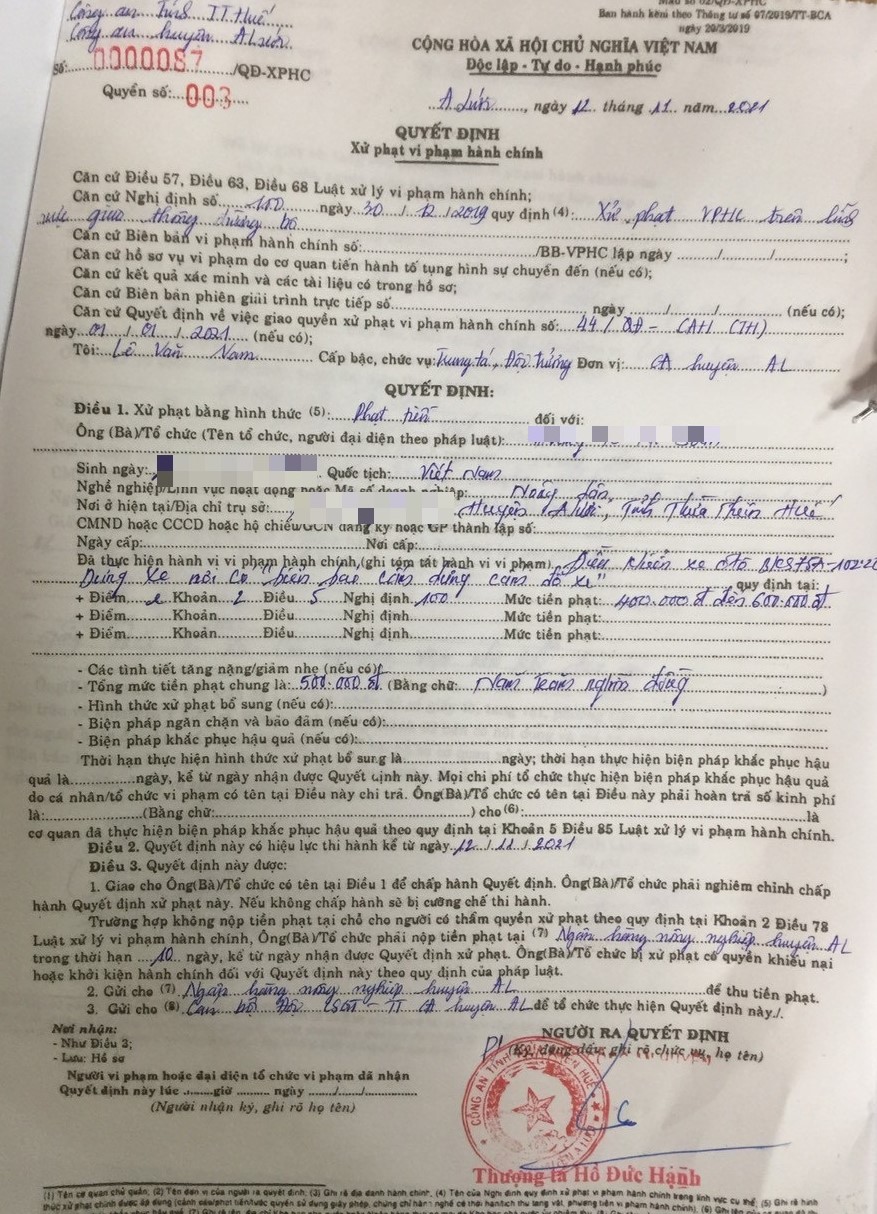 Mẫu số 02/QĐ-XPHC
Ban hành kèm theo Thông tư số 07/2019/TT-BCA
ngày 20/3/2019
Công an Tỉnh T.T.Huế
Công an huyện A Lưới
Số:...0000087/QĐ-XPHC
Quyển số:...003
CỘNG HÒA XÃ HỘI CHỦ NGHĨA VIỆT NAM
Độc lập - Tự do - Hạnh phúc
A Lưới, ngày 12 tháng 11 năm 2021
QUYẾT ĐỊNH
Xử phạt vi phạm hành chính
Căn cứ Điều 57, Điều 63, Điều 68 Luật xử lý vi phạm hành chính;
Căn cứ Nghị định số 100 ngày 30 / 12 / 2019 quy định (4): Xử phạt VPHC trên lĩnh
vực giao thông đường bộ
Căn cứ Biên bản vi phạm hành chính số:........../BB-VPHC lập ngày ....../....../......;
Căn cứ hồ sơ vụ vi phạm do cơ quan tiến hành tố tụng hình sự chuyển đến (nếu có);
Căn cứ kết quả xác minh và các tài liệu có trong hồ sơ;
Căn cứ Biên bản phiên giải trình trực tiếp số.......... ngày ....../....../...... (nếu có);
Căn cứ Quyết định về việc giao quyền xử phạt vi phạm hành chính số: 44 / QĐ - CAH (TH)
ngày 01 / 01 / 2021 (nếu có);
Tôi: Lê Văn Nam Cấp bậc, chức vụ: Trung tá, Đội trưởng Đơn vị: CA huyện AL
QUYẾT ĐỊNH:
Điều 1. Xử phạt bằng hình thức (5): Phạt tiền đối với:
Ông (Bà)/Tổ chức (Tên tổ chức, người đại diện theo pháp luật):
Sinh ngày: Quốc tịch: Việt Nam
Nghề nghiệp/Lĩnh vực hoạt động hoặc Mã số doanh nghiệp: Nông dân
Nơi ở hiện tại/Địa chỉ trụ sở: Huyện A Lưới, Tỉnh Thừa Thiên Huế
CMND hoặc CCCD hoặc hộ chiếu/GCN đăng ký hoặc GP thành lập số:
Ngày cấp:.......... Nơi cấp:..........
Đã thực hiện hành vi vi phạm hành chính (ghi tóm tắt hành vi vi phạm) "Điều khiển xe ôtô BKS 75A-102.20
Dừng xe nơi có biển báo cấm dừng cấm đỗ xe", quy định tại:
+ Điểm e Khoản 2 Điều 5 Nghị định 100 Mức tiền phạt: 400.000 đ đến 600.000 đ
+ Điểm....... Khoản....... Điều....... Nghị định....... Mức tiền phạt:
+ Điểm....... Khoản....... Điều....... Nghị định....... Mức tiền phạt:
- Các tình tiết tăng nặng/giảm nhẹ (nếu có)
- Tổng mức tiền phạt chung là: 500.000 đ (Bằng chữ: Năm trăm nghìn đồng)
- Hình thức xử phạt bổ sung (nếu có):
- Biện pháp ngăn chặn và bảo đảm (nếu có):
- Biện pháp khắc phục hậu quả (nếu có):
Thời hạn thực hiện hình thức xử phạt bổ sung là..........ngày; thời hạn thực hiện biện pháp khắc phục hậu
quả là..........ngày, kể từ ngày nhận được Quyết định này. Mọi chi phí tổ chức thực hiện biện pháp khắc phục hậu quả
do cá nhân/tổ chức vi phạm có tên tại Điều này chi trả. Ông(Bà)/Tổ chức có tên tại Điều này phải hoàn trả số kinh phí
là:..........(Bằng chữ:..........) cho (6):..........là
cơ quan đã thực hiện biện pháp khắc phục hậu quả theo quy định tại Khoản 5 Điều 85 Luật xử lý vi phạm hành chính.
Điều 2. Quyết định này có hiệu lực thi hành kể từ ngày 12 / 11 / 2021
Điều 3. Quyết định này được:
1. Giao cho Ông(Bà)/Tổ chức có tên tại Điều 1 để chấp hành Quyết định. Ông(Bà)/Tổ chức phải nghiêm chỉnh chấp
hành Quyết định xử phạt này. Nếu không chấp hành sẽ bị cưỡng chế thi hành.
Trường hợp không nộp tiền phạt tại chỗ cho người có thẩm quyền xử phạt theo quy định tại Khoản 2 Điều 78
Luật xử lý vi phạm hành chính, Ông(Bà)/Tổ chức phải nộp tiền phạt tại (7) Ngân hàng nông nghiệp huyện AL
trong thời hạn 10 ngày, kể từ ngày nhận được Quyết định xử phạt. Ông(Bà)/Tổ chức bị xử phạt có quyền khiếu nại
hoặc khởi kiện hành chính đối với Quyết định này theo quy định của pháp luật.
2. Gửi cho (7) Ngân hàng nông nghiệp huyện AL để thu tiền phạt.
3. Gửi cho (8) Cán bộ Đội CSGT - TT CA huyện AL để tổ chức thực hiện Quyết định này./.
Nơi nhận:
- Như Điều 3;
- Lưu: Hồ sơ
Người vi phạm hoặc đại diện tổ chức vi phạm đã nhận
Quyết định này lúc .......giờ ....... ngày ....../....../......
(Người nhận ký, ghi rõ họ tên)
NGƯỜI RA QUYẾT ĐỊNH
(Ký, đóng dấu, ghi rõ chức vụ, họ tên)
Thượng tá Hồ Đức Hạnh